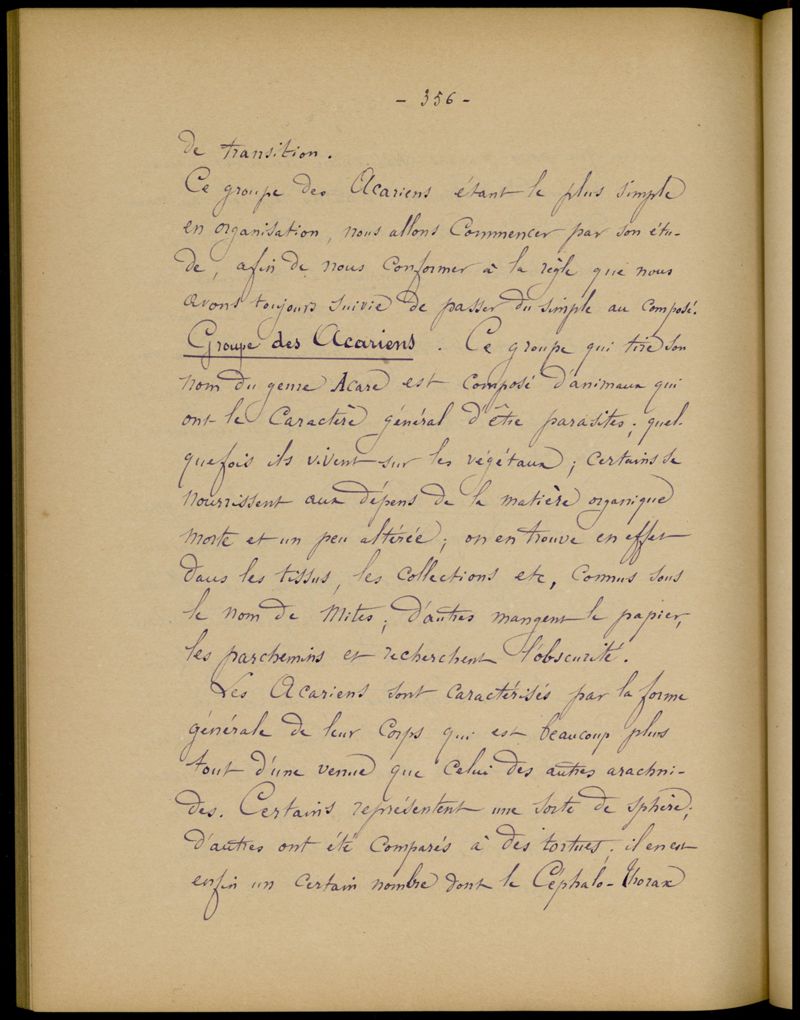 - 356 -
de transition.
Ce groupe des Acariens étant le plus simple
en organisation, nous allons commencer par son étu-
de, afin de nous conformer à la règle que nous
avons toujours suivie de passer du simple au composé.
Groupe des Acariens. Ce groupe qui tire son
nom du genre Acare est composé d'animaux qui
ont le caractère général d'être parasites; quel-
quefois ils vivent sur les végétaux; certains se
nourrissent aux dépens de la matière organique
morte et un peu altérée; on en trouve en effet
dans les tissus, les collections etc, connus sous
le nom de Mites; d'autres mangent le papier,
les parchemins et recherchent l'obscurité.
Les Acariens sont caractérisés par la forme
générale de leur corps qui est beaucoup plus
tout d'une venue que celui des autres arachni-
des. Certains représentent une sorte de sphère;
d'autres ont été comparés à des tortues; il en est
enfin un certain nombre dont le Céphalo-thorax